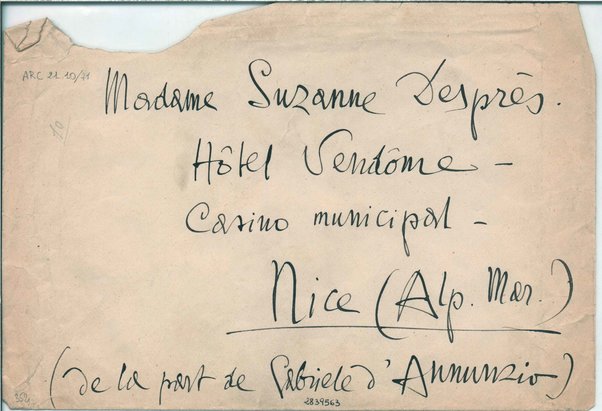 ARC 21 10/71
Madame Suzanne Desprès.
Hôtel Vendôme -
Casino municipal -
Nice (Alp. Mar.)
(de la part de Gabriele d'Annunzio)
2839563